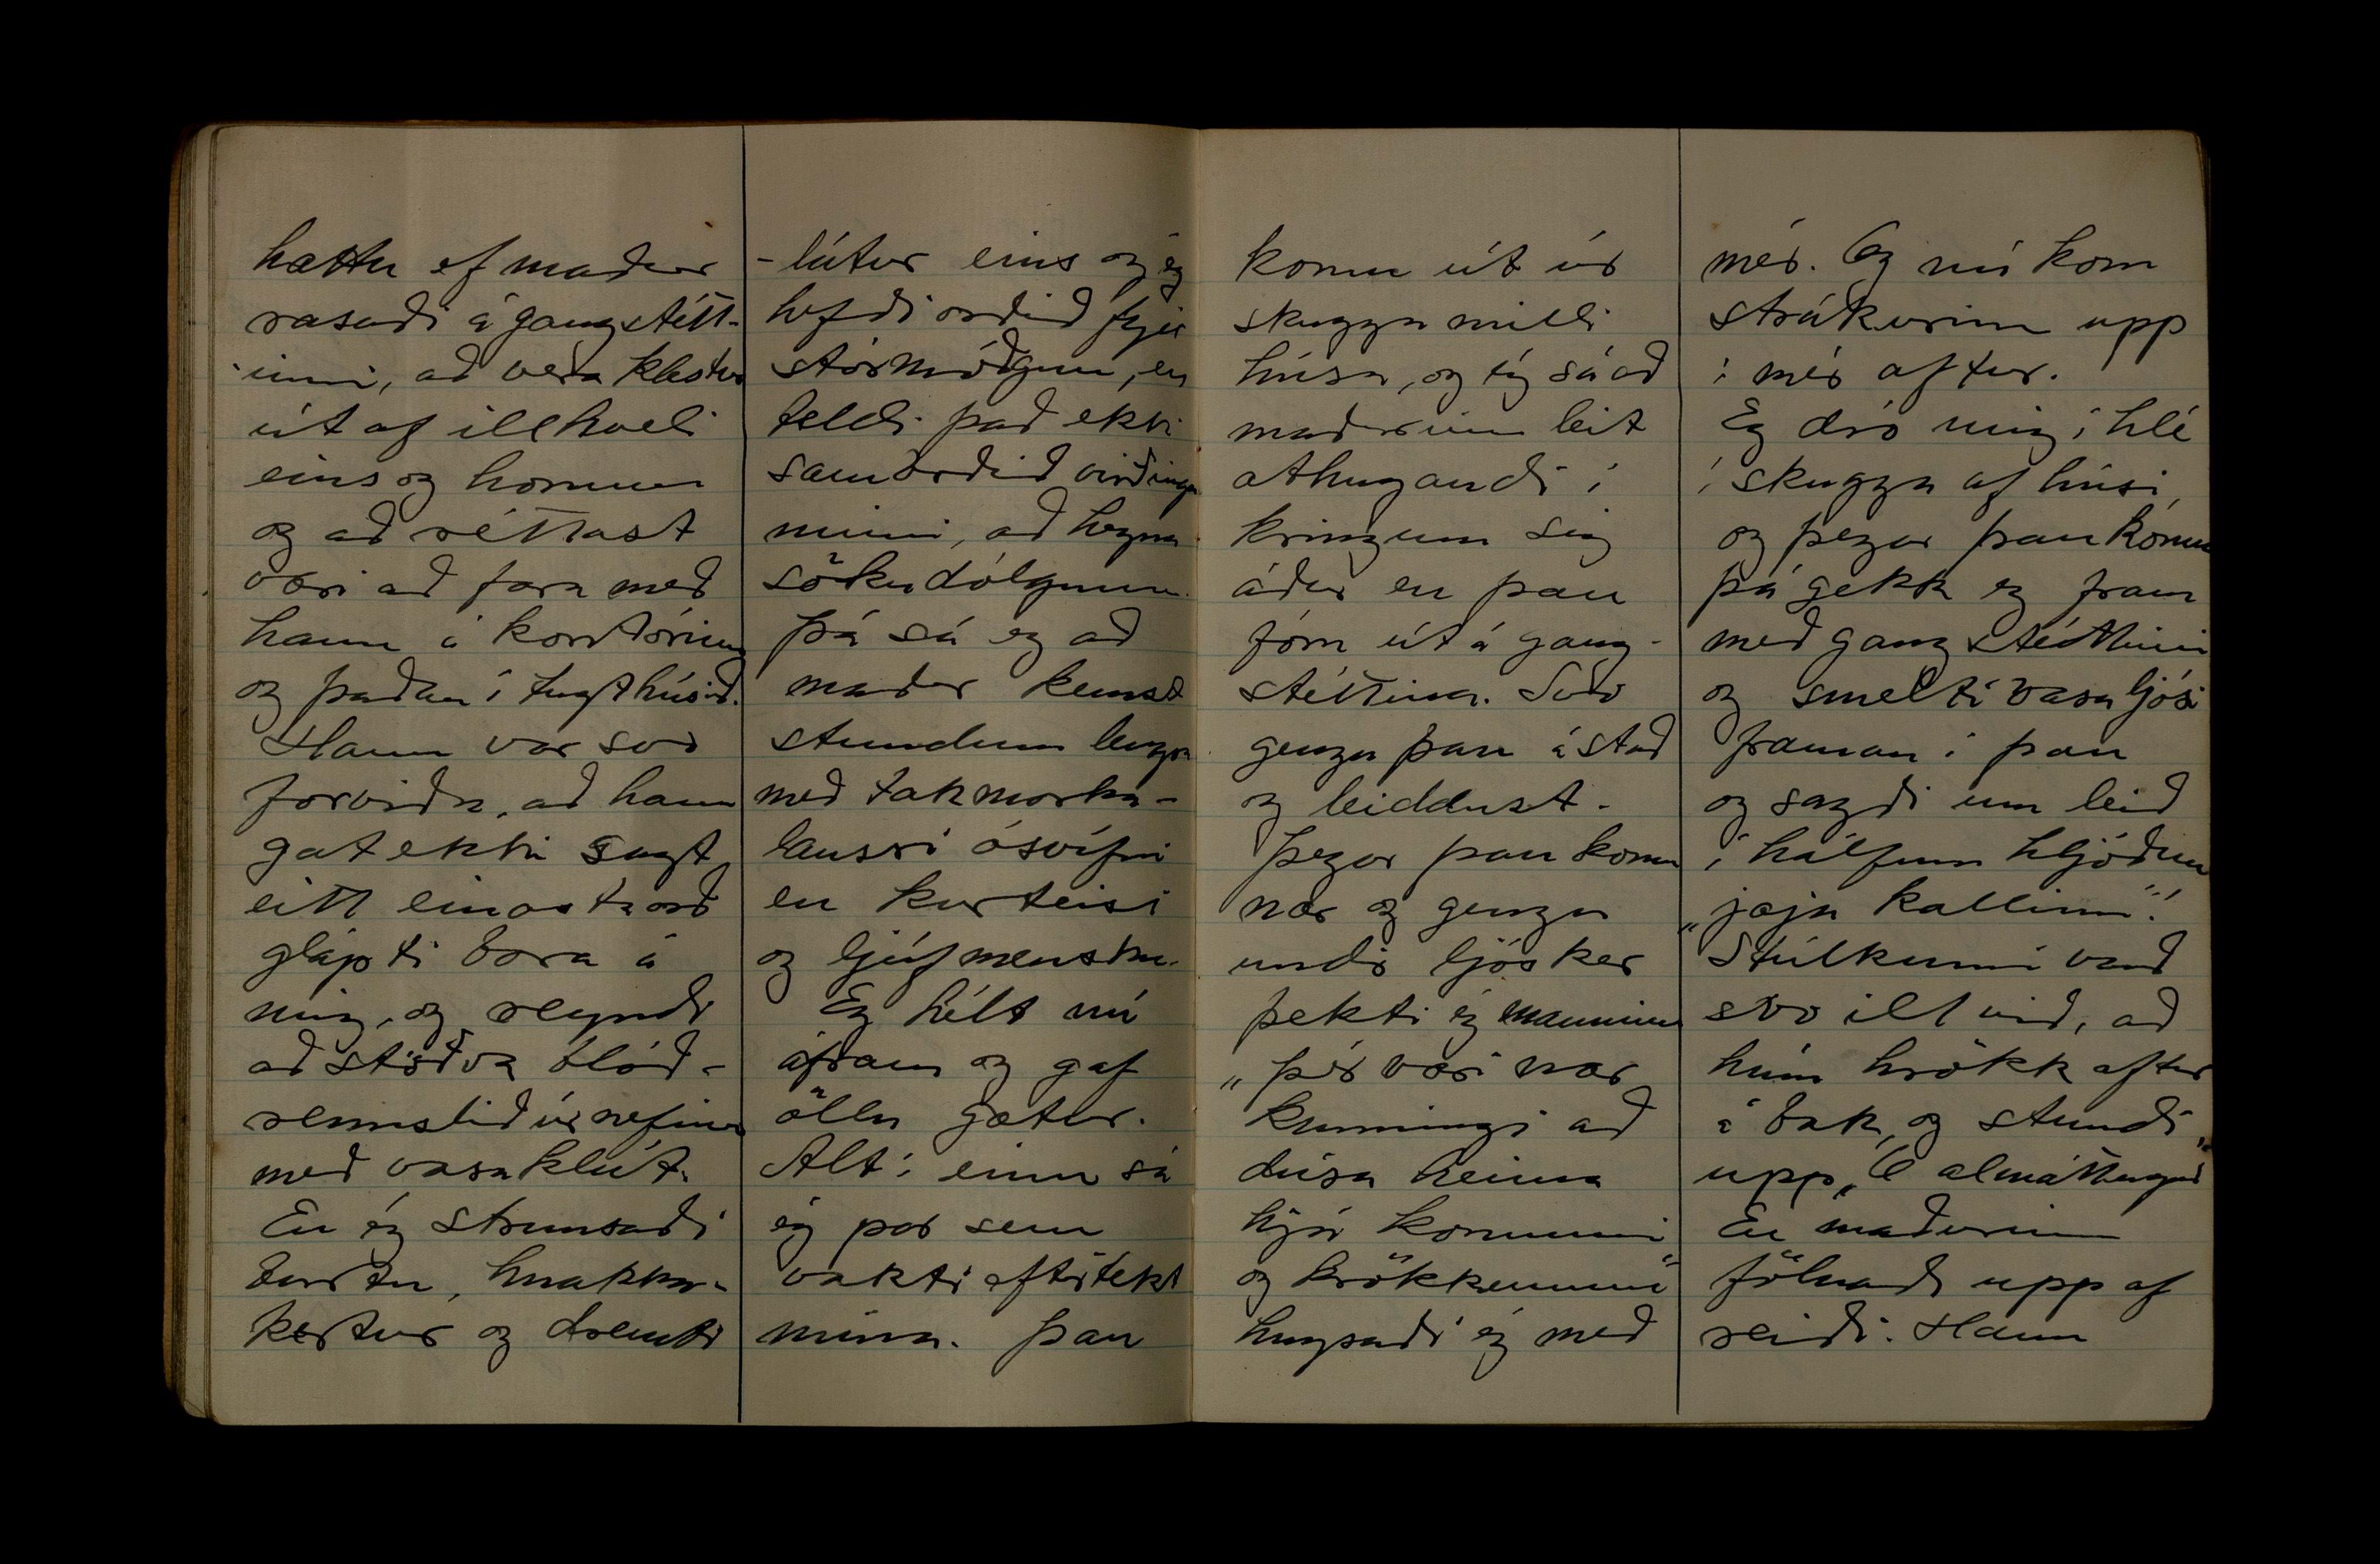 hættu ef maður
rasaði á gangstétt-
inni, að vera klestur
út af illhveli
eins og honum
og að réttast
væri að fara með
hann á kontórinn
og þaðan í tugthúsið.
Hann var svo
forviða, að hann
gat ekki sagt
eitt einasta orð
glápti bara á
mig, og reyndi
að stöðva blóð-
rennslið úr nefinu
með vasaklút.
En ég strunsaði
burtu, hnakka-
kertur og drembi
-látur eins og ég
hefði orðið fyrir
stórmóðgun, en
teldi það ekki
samboðið virðingu
minni, að hegna
sökudólgnum.
Þá sá eg að
maður kemst
stundum lengra
með takmarka-
laussri ósvífni
en kurteisi
og ljúfmensku.
Eg hélt nú
áfram og gaf
öllu gætur.
Alt í einu sá
ég par sem
vakti eftirtekt
mína. Þau
komu út úr
skugga milli
húsa, og ég sá að
maðurinn leit
athugandi í
kringum sig
áður en þau
fóru út á gang-
stéttina. Svo
gengu þau á stað
og leiddust.
Þegar þau komu
nær og gengu
undir ljósker
þekti ég manninn
„Þér væri nær
kunningi að
dúsa heima
hjá konunni
og krökkunum“
hugsaði ég með
mér. Og nú kom
strákurinn upp
í mér aftur.
Eg dró mig í hlé
í skugga af húsi,
og þegar þau komu
þá gekk eg fram
með gangstéttinni
og smelti vasaljósi
framan í þau
og sagði um leið
í hálfum hljóðum
„jæja kallinn“!
Stúlkunni varð
svo illt við, að
hún hrökk aftur
á bak, og stundi
upp „Ó almáttugur“
En maðurinn
fölnaði upp af
reiði. Hann